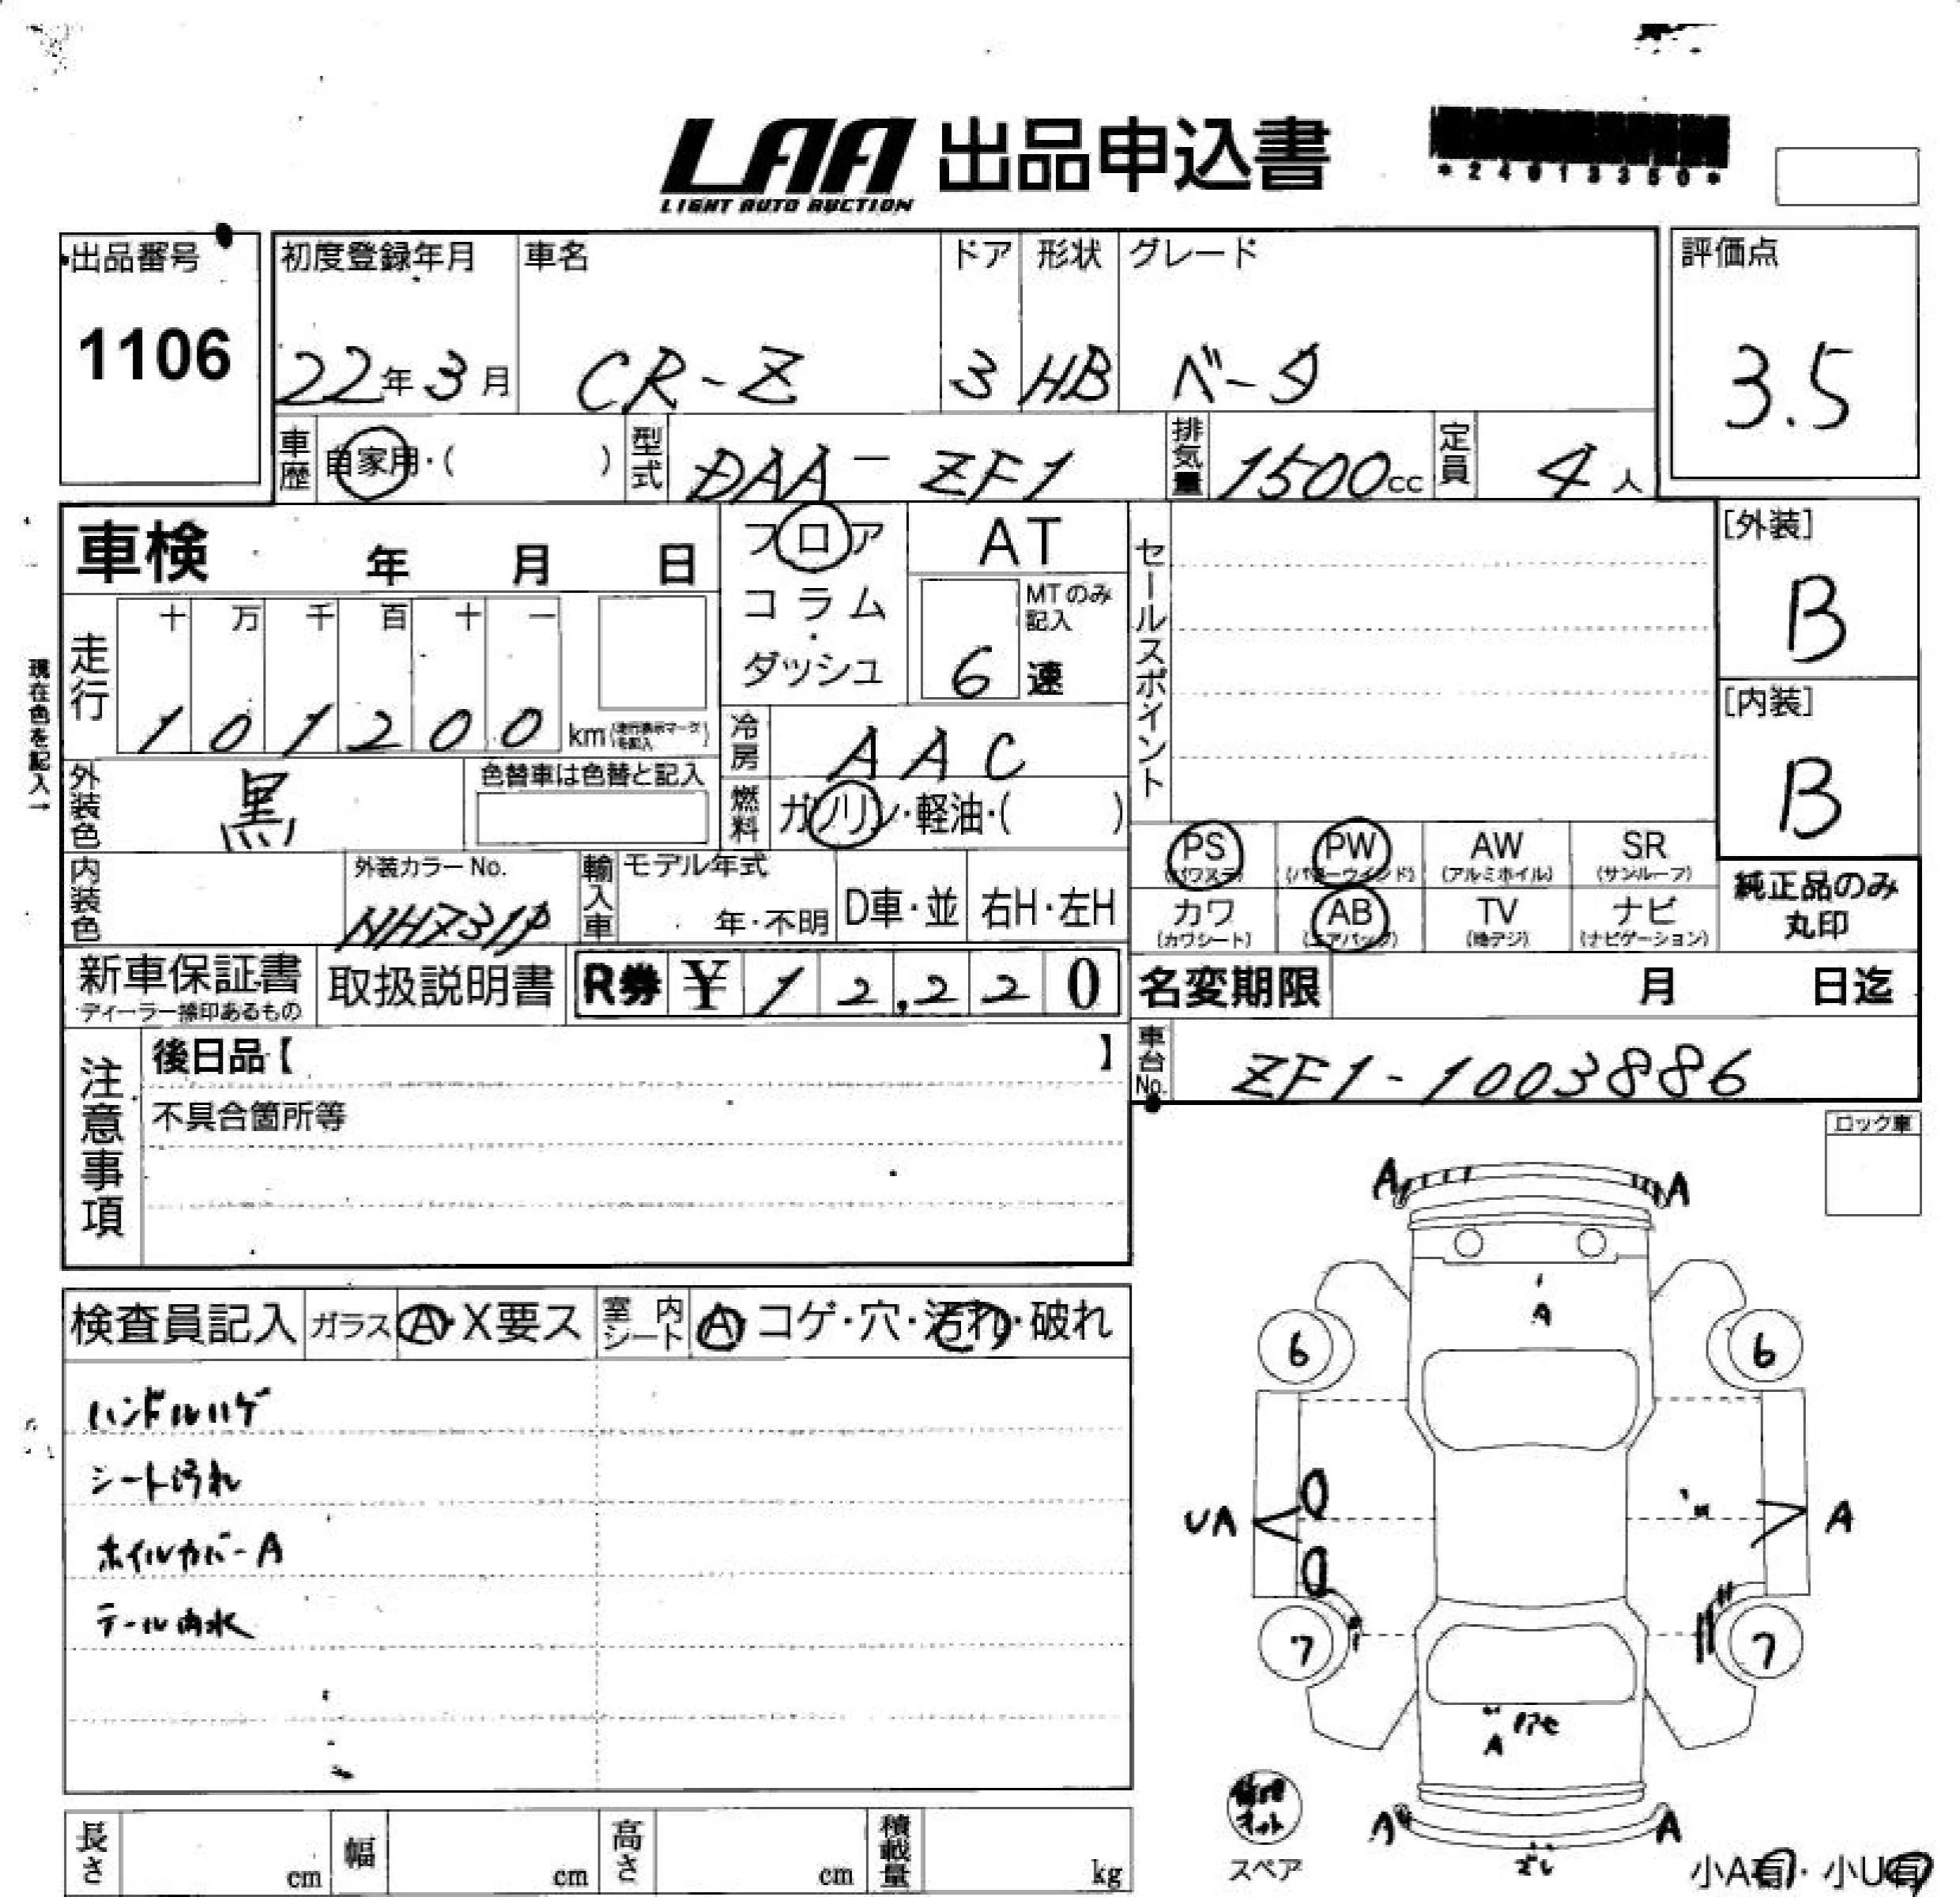 LAA 出品申込書
LIGHT AUTO AUCTION
*24013350*
出品番号
1106
初度登録年月 車名 ドア 形状 グレード
22年3月 CR-Z 3 HB ベータ
評価点
3.5
車歴 自家用・( ) 型式 DAA-ZF1 排気量 1500cc 定員 4人
車検 年 月 日
フロア
コラム
・
ダッシュ
AT
MTのみ記入
6速
セールスポイント
[外装]
B
[内装]
B
現在色を記入→
走行 十 万 千 百 十 一
101200 km
冷房 AAC
外装色 黒 色替車は色替と記入
燃料 ガソリン・軽油・( )
PS PW AW SR
(パワステ) (パワーウインド) (アルミホイル) (サンルーフ)
カワ AB TV ナビ
(カワシート) (エアバック) (地デジ) (ナビゲーション)
純正品のみ
丸印
内装色 外装カラーNo.
NH731P
輸入車 モデル年式
年・不明 D車・並 右H・左H
新車保証書
ディーラー捺印あるもの
取扱説明書 R券 ¥ 12,220
名変期限 月 日迄
注意事項
後日品【 】
不具合箇所等
車台No. ZF1-1003886
ロック車
検査員記入 ガラス A・X要ス 室内シート A・コゲ・穴・汚れ・破れ
ハンドルハゲ
シート汚れ
ホイルカバーA
テール内水
A A
A
6 6
UA A
7 7
A
A A
スペア
小A有・小U有
長さ cm 幅 cm 高さ cm 積載量 kg